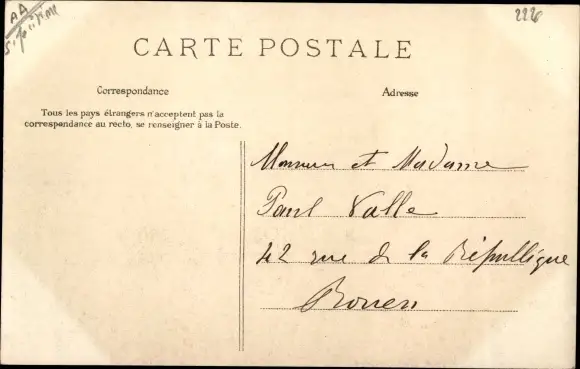 AA
2226
CARTE POSTALE
Correspondance
Adresse
Tous les pays étrangers n'acceptent pas la
correspondance au recto, se renseigner à la Poste.
Monsieur et Madame
Paul Valle
42 rue de la République
Rouen